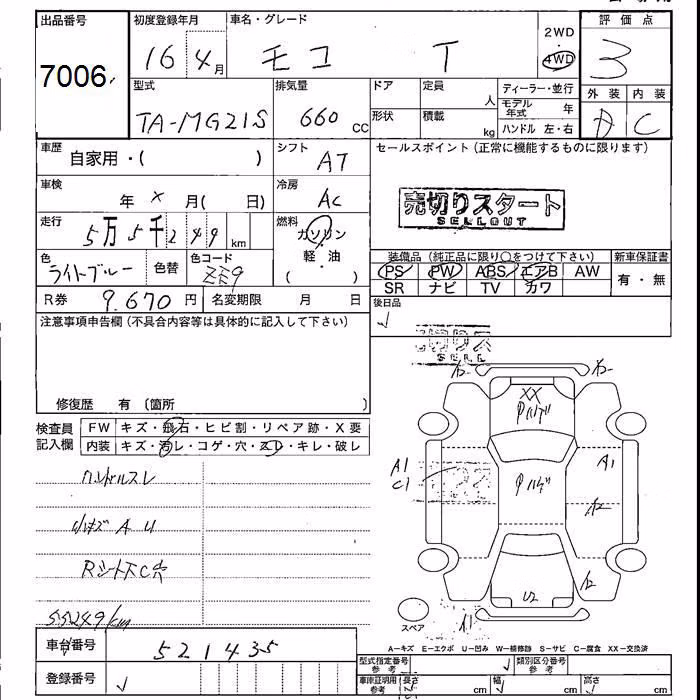 出品番号 初度登録年月 車名・グレード 2WD 評価点
7006 16 4月 モコ T 4WD 3
型式 排気量 ドア 定員 人 ティーラー・並行 外装 内装
TA-MG21S 660 CC 形状 積載 kg モデル年式 年 ハンドル 左・右 A C
車歴 自家用・( ) シフト AT セールスポイント(正常に機能するものに限ります)
車検 年 × 月( 日) 冷房 AC 売切りスタート
SELLOUT
走行 5万5千249 km 燃料 ガソリン
軽・油
( )
色 ライトブルー 色替 色コード 装備品(純正品に限り○をつけて下さい) 新車保証書
PS PW ABS エアB AW 有・無
SR ナビ TV カワ
R券 9.670 円 名変期限 月 日 後日品
注意事項申告欄(不具合内容等は具体的に記入して下さい)
売切りス
SELL
修復歴 有(箇所 )
検査員 FW キズ・飛石・ヒビ割・リペア跡・X要
記入欄 内装 キズ・汚レ・コゲ・穴・スレ・キレ・破レ
ハンドルスレ
小キズ A U
Rシート下C穴
55249/km
A2 A2
XX
Pハゲ
A1
C1
Pハゲ
A1
A2
A2
U2
A1
スペア
A―キズ E―エクボ U―凹み W―補修跡 S―サビ C―腐食 XX―交換済
車台番号 521435
登録番号
型式指定番号 参考 類別区分番号 参考
車庫証明用 参考 長さ cm 幅 cm 高さ cm